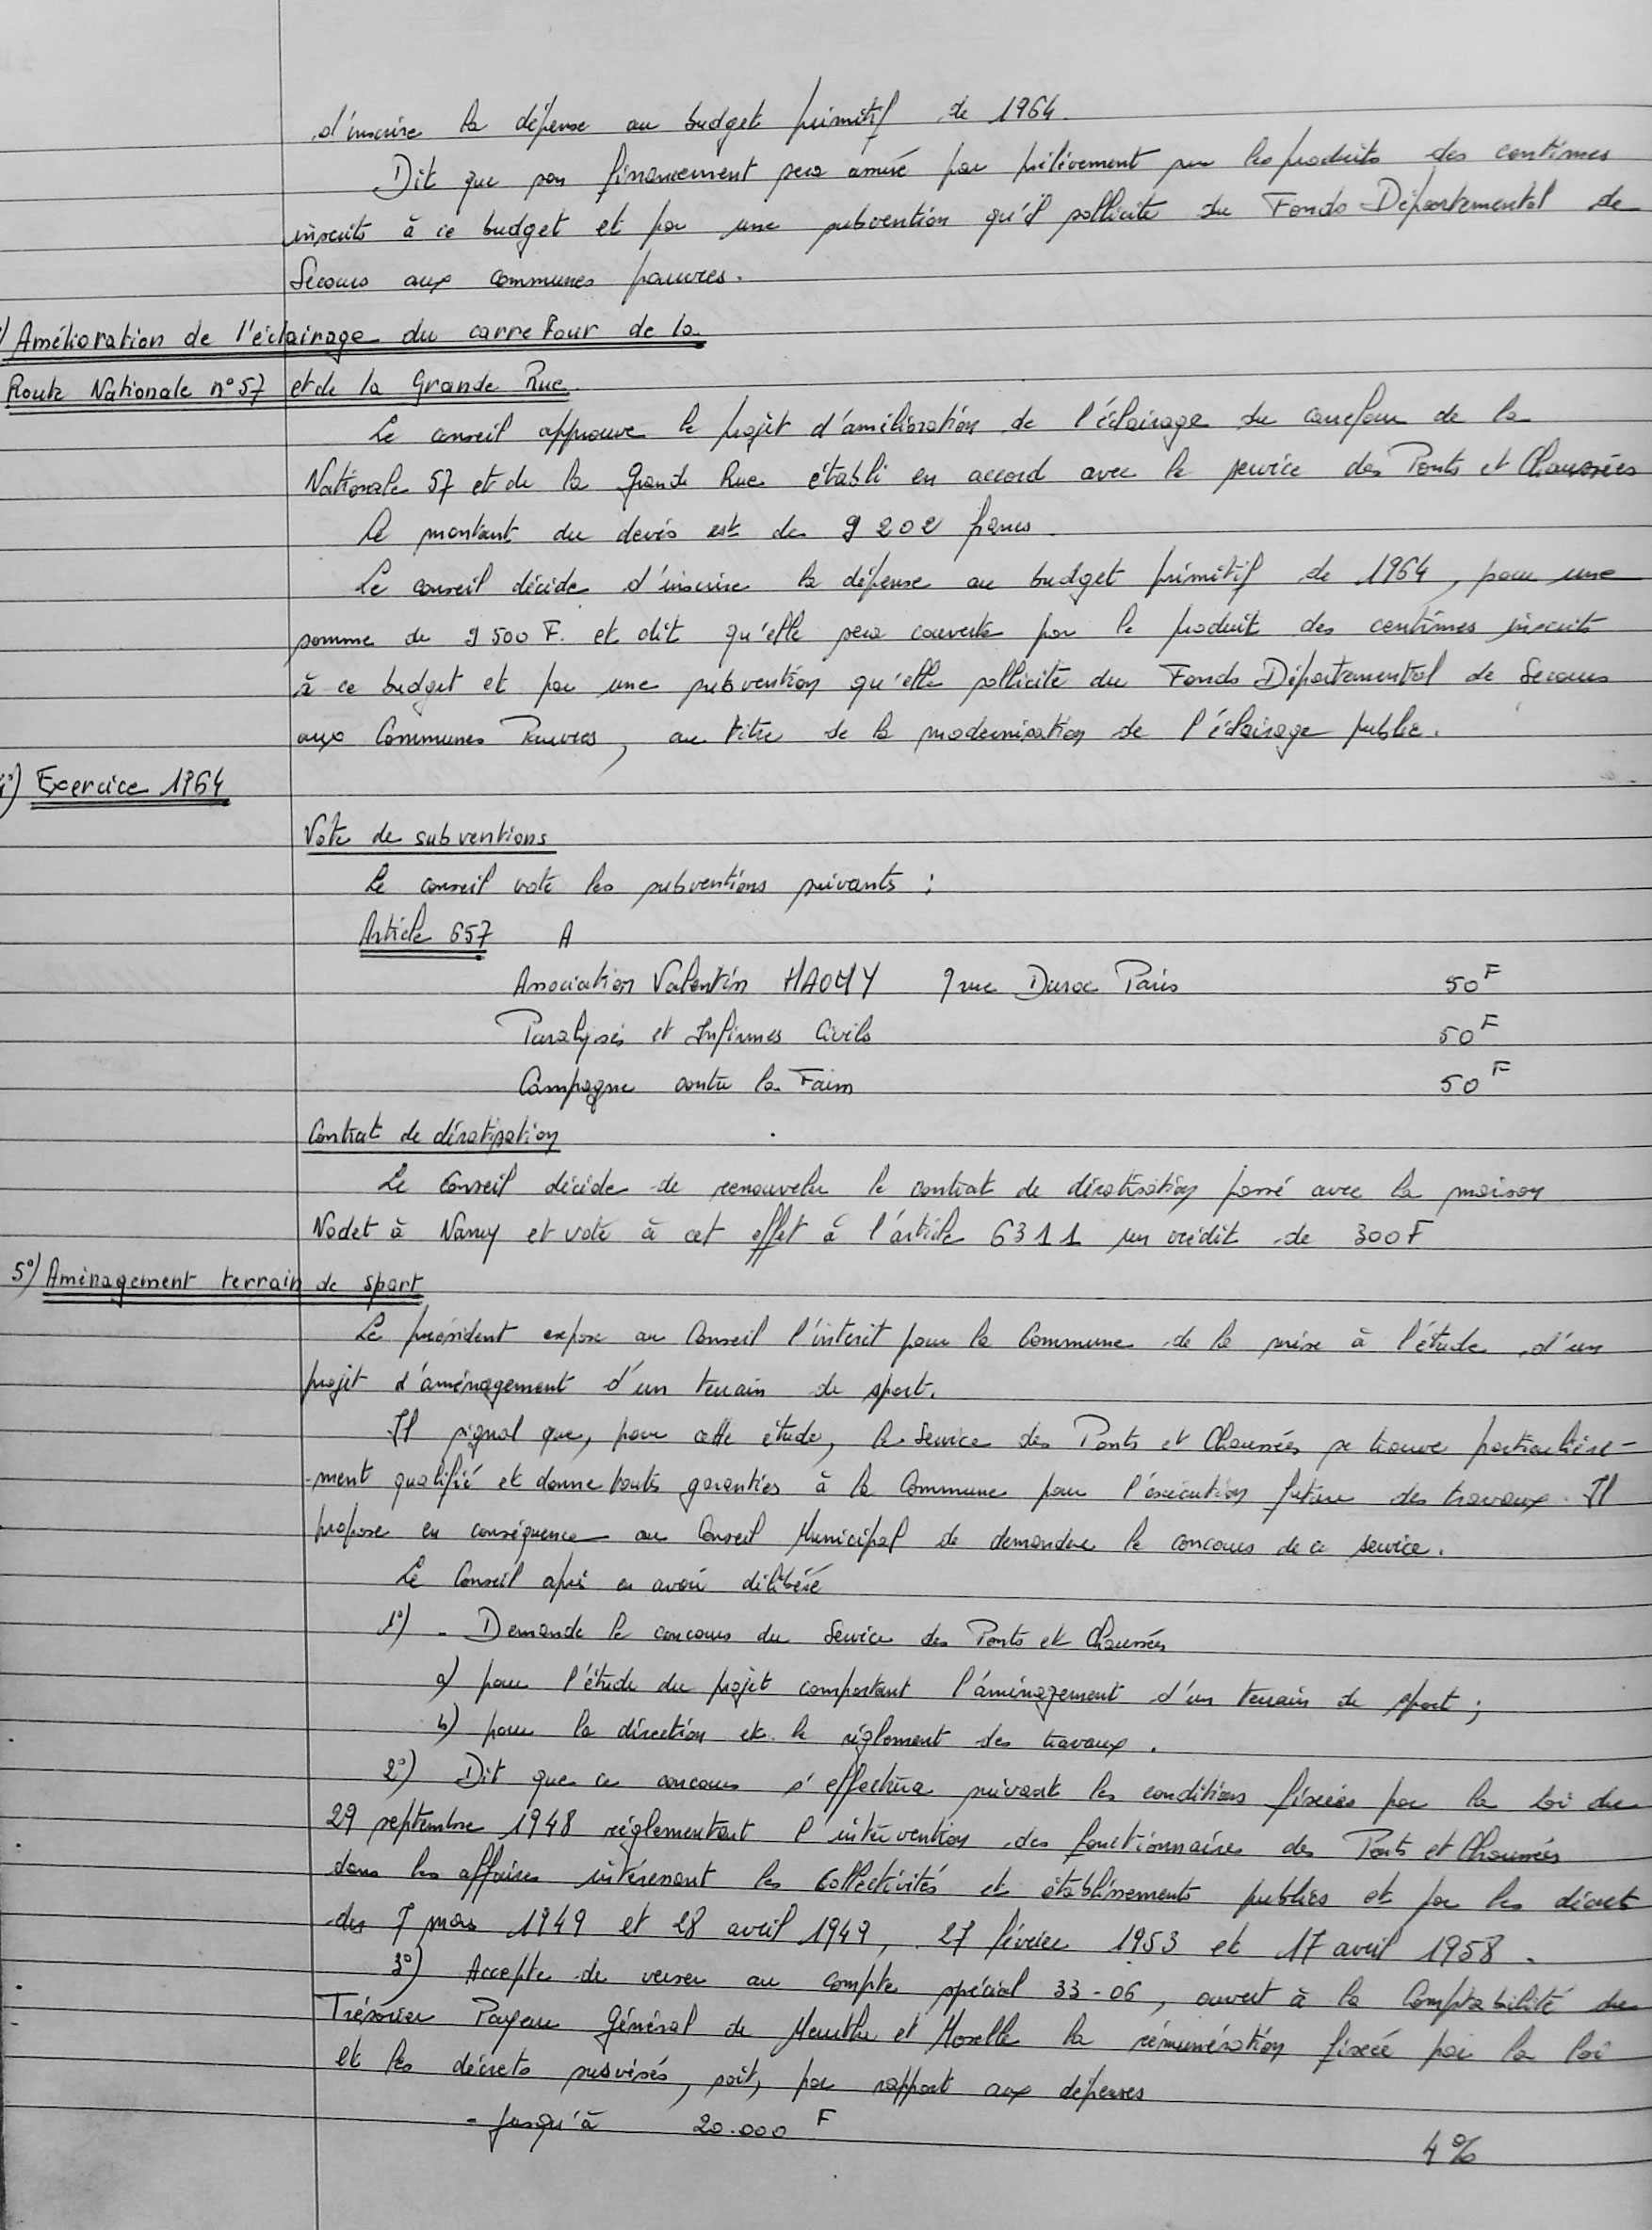 d'inscrire la dépense au budget primitif de 1964.
Dit que son financement sera assuré par prélèvement sur les produits des centimes
inscrits à ce budget et par une subvention qu'il sollicite du Fonds Départemental de
Secours aux communes pauvres.
) Amélioration de l'éclairage du carrefour de la
Route Nationale n° 57 et de la Grande Rue.
Le conseil approuve le projet d'amélioration de l'éclairage du carrefour de la
Nationale 57 et de la Grande Rue établi en accord avec le service des Ponts et Chaussées
Le montant du devis est de 9 202 francs.
Le conseil décide d'inscrire la dépense au budget primitif de 1964, pour une
somme de 9 500 F. et dit qu'elle sera couverte par le produit des centimes inscrits
à ce budget et par une subvention qu'elle sollicite du Fonds Départemental de Secours
aux Communes Pauvres, au titre de la modernisation de l'éclairage public.
°) Exercice 1964
Vote de subventions
Le conseil vote les subventions suivants :
Article 657 A
Association Valentin HAOUY 9 rue Duroc Paris 50 F
Paralysés et Infirmes Civils 50 F
Campagne contre la Faim 50 F
Contrat de dératisation
Le Conseil décide de renouveler le contrat de dératisation passé avec la maison
Nodet à Nancy et vote à cet effet à l'article 6311 un crédit de 300 F
5°) Aménagement terrain de sport
Le président expose au Conseil l'intérêt pour la Commune de la mise à l'étude d'un
projet d'aménagement d'un terrain de sport.
Il signal que, pour cette étude, le Service des Ponts et Chaussées se trouve particulière-
-ment qualifié et donne touts garanties à la Commune pour l'exécution future des travaux. Il
propose en conséquence au Conseil Municipal de demander le concours de ce service.
Le Conseil après en avoir délibéré
1°) - Demande le concours du Service des Ponts et Chaussées
a) pour l'étude du projet comportant l'aménagement d'un terrain de sport ;
b) pour la direction et le règlement des travaux.
2°) Dit que ce concours s'effectura suivant les conditions fixées par la Loi du
29 septembre 1948 réglementant l'intervention des fonctionnaires des Ponts et Chaussées
dans les affaires intéressant les Collectivités et établissements publics et par les décrets
des 7 mars 1949 et 28 avril 1949, 27 février 1953 et 17 avril 1958.
3°) Accepte de verser au compte spécial 33-06, ouvert à la Comptabilité du
Trésorier Payeur Général de Meurthe et Moselle la rémunération fixée par la loi
et les décrets susvisés, soit, par rapport aux dépenses
- jusqu'à 20.000 F 4 %